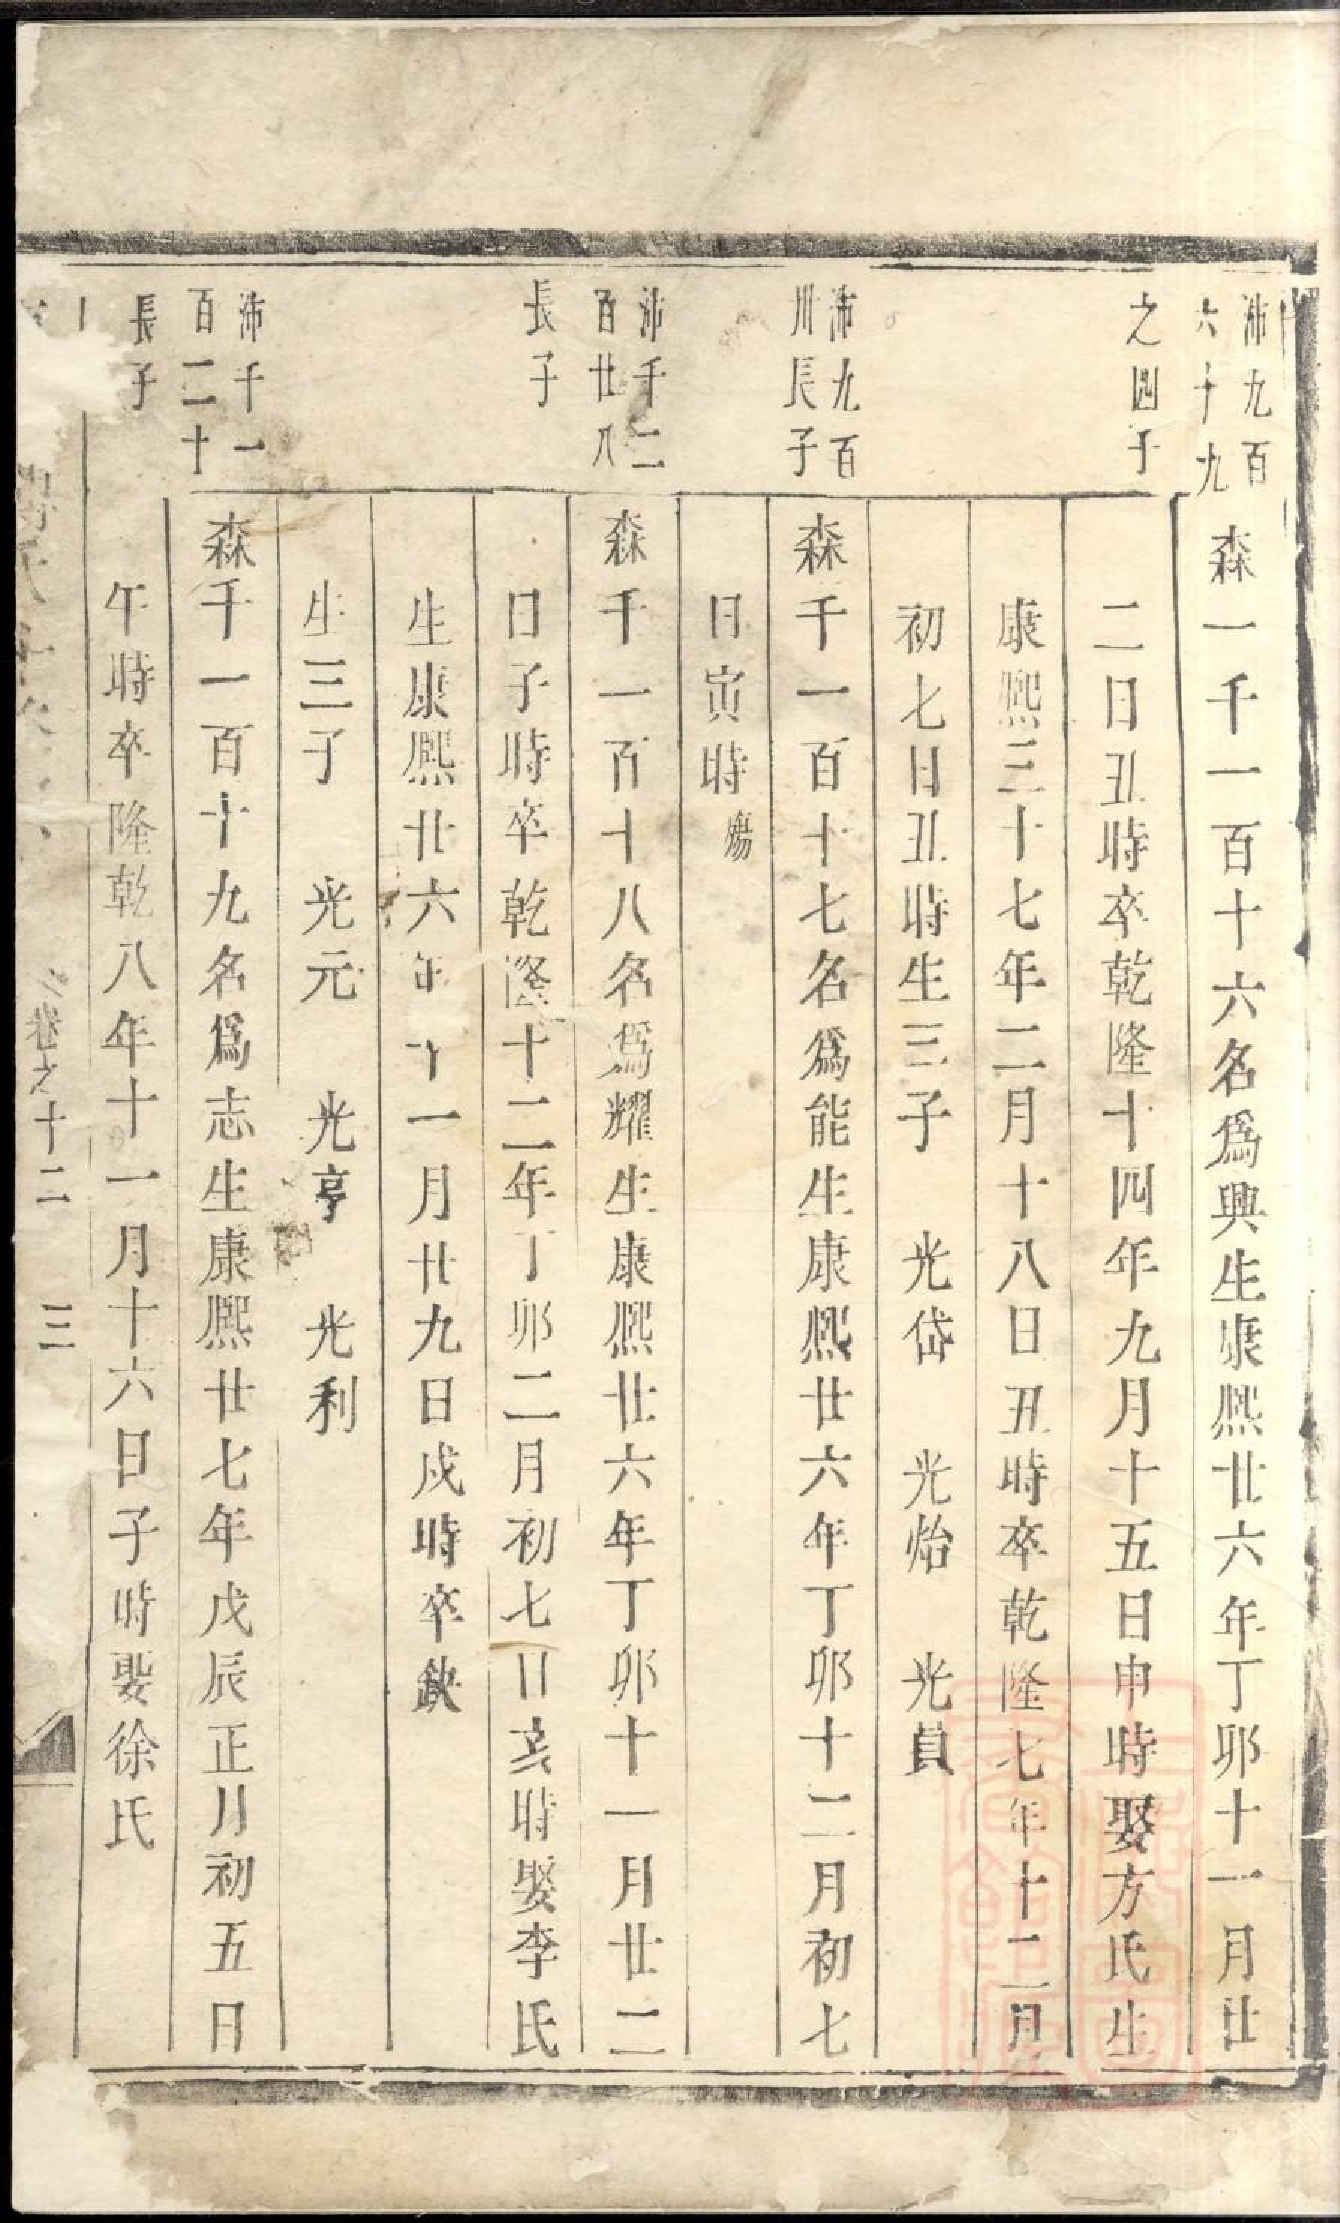 沛九百
六十九
之四子
森一千一百十六名爲興生康熙廿六年丁卯十一月廿
二日丑時卒乾隆十四年九月十五日申時娶方氏生
康熙三十七年二月十八日丑時卒乾隆七年十二月
初七日丑時生三子　光岱　光怡　光員
沛九百
卅長子
森千一百十七名爲能生康熙廿六年丁卯十二月初七
日寅時殤
沛千二
百廿八
長子
森千一百十八名爲耀生康熙廿六年丁卯十一月廿二
日子時卒乾隆十二年丁卯二月初七日亥時娶李氏
生康熙廿六年十一月廿九日戌時卒缺
生三子　光元　光亨　光利
沛千一
百二十
長子
森千一百十九名爲志生康熙廿七年戊辰正月初五日
午時卒隆乾八年十一月十六日子時娶徐氏
卷之十二　三